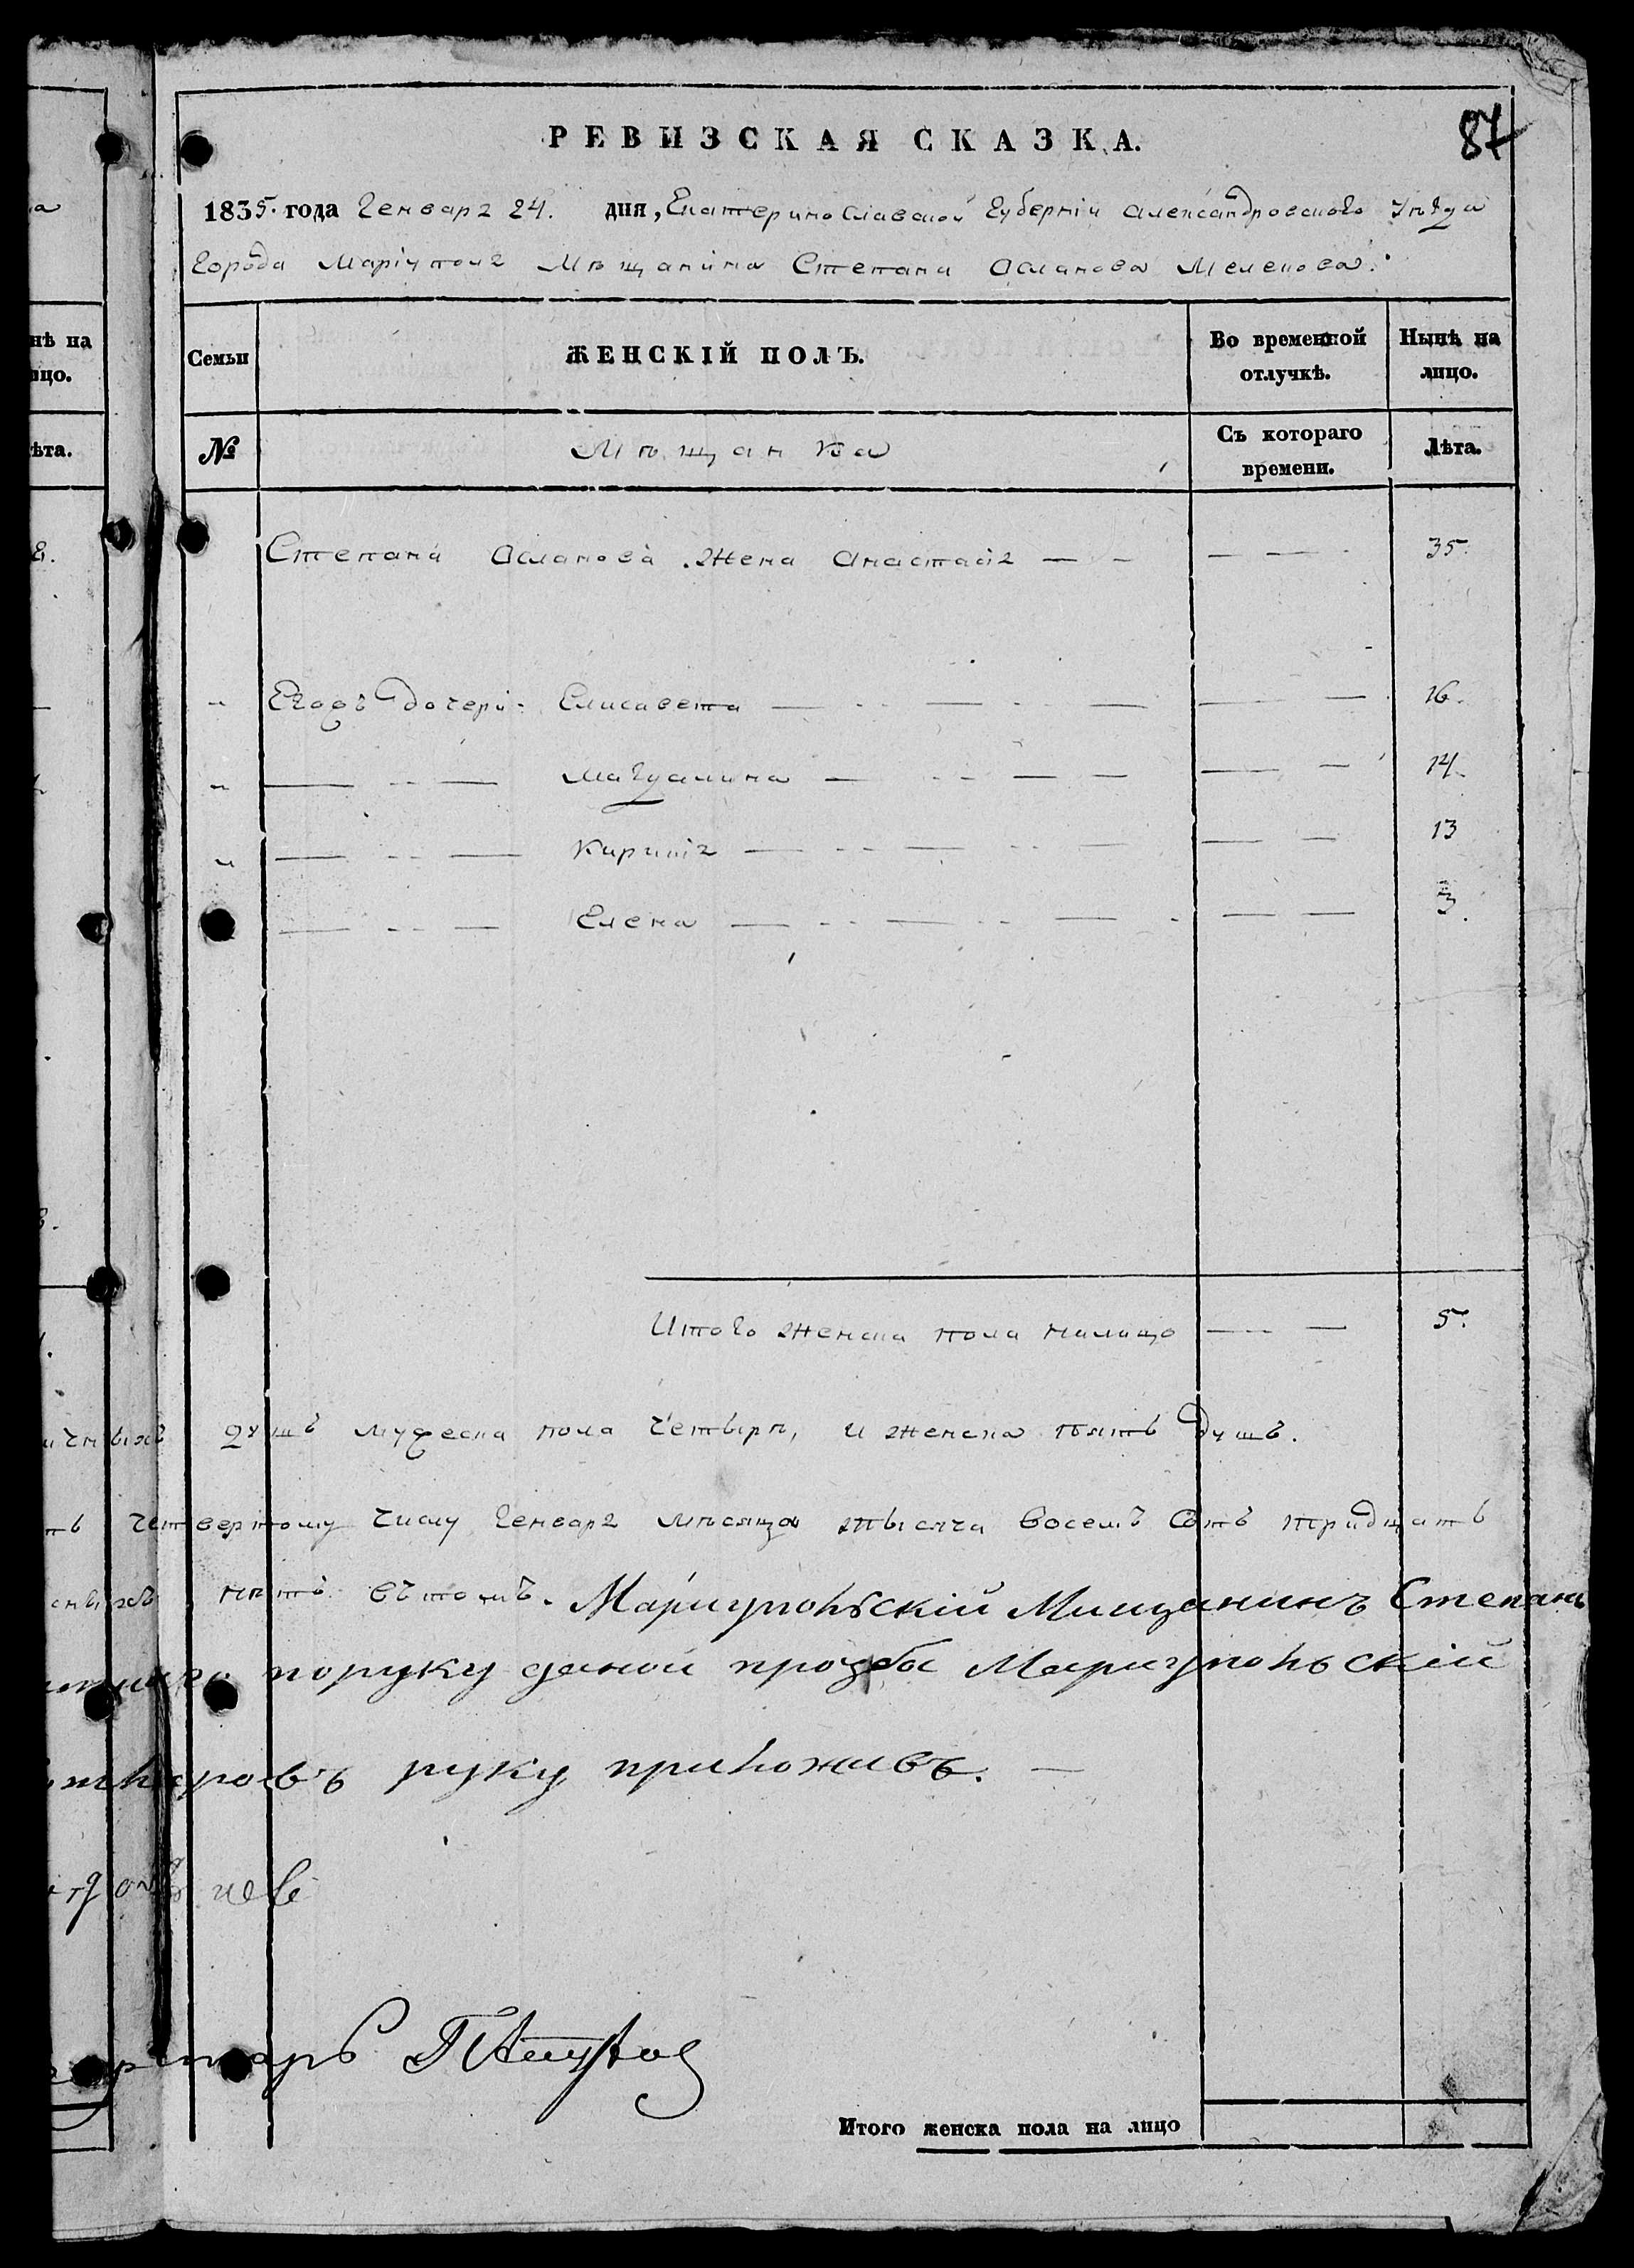 87
РЕВИЗСКАЯ СКАЗКА.
1835. года Генваря 24. дня, Екатеринославской Губерніи Александровского Уѣзда
города Маріуполя Мѣщанина Степана Асланова
нѣ на
ицо.
Семьи
ЖЕНСКІЙ ПОЛЪ.
Во временной отлучкѣ.
Нынѣ на лицо.
ѣта.
№
Мѣщанка
Съ котораго времени.
Лѣта.
Степана Асланова жена Анастасія — — — — 35.
Егожъ дочери: Елисавета — — — — — 16.
— — Магдалина — — — — — 14.
— — Кирикія — — — — — 13
— — Елена — — — — — 3.
Итого женска пола налицо — — 5.
душъ мужеска пола четыри, и женска пять душъ.
четвертому числу Генваря мѣсяца тысяча восемъ сотъ тридцать
пятъ вътомъ. Маріупольскій Мищанинъ Степанъ
поруку даной прозбы Мариупольскій
руку приложивъ. —
Итого женска пола на лицо